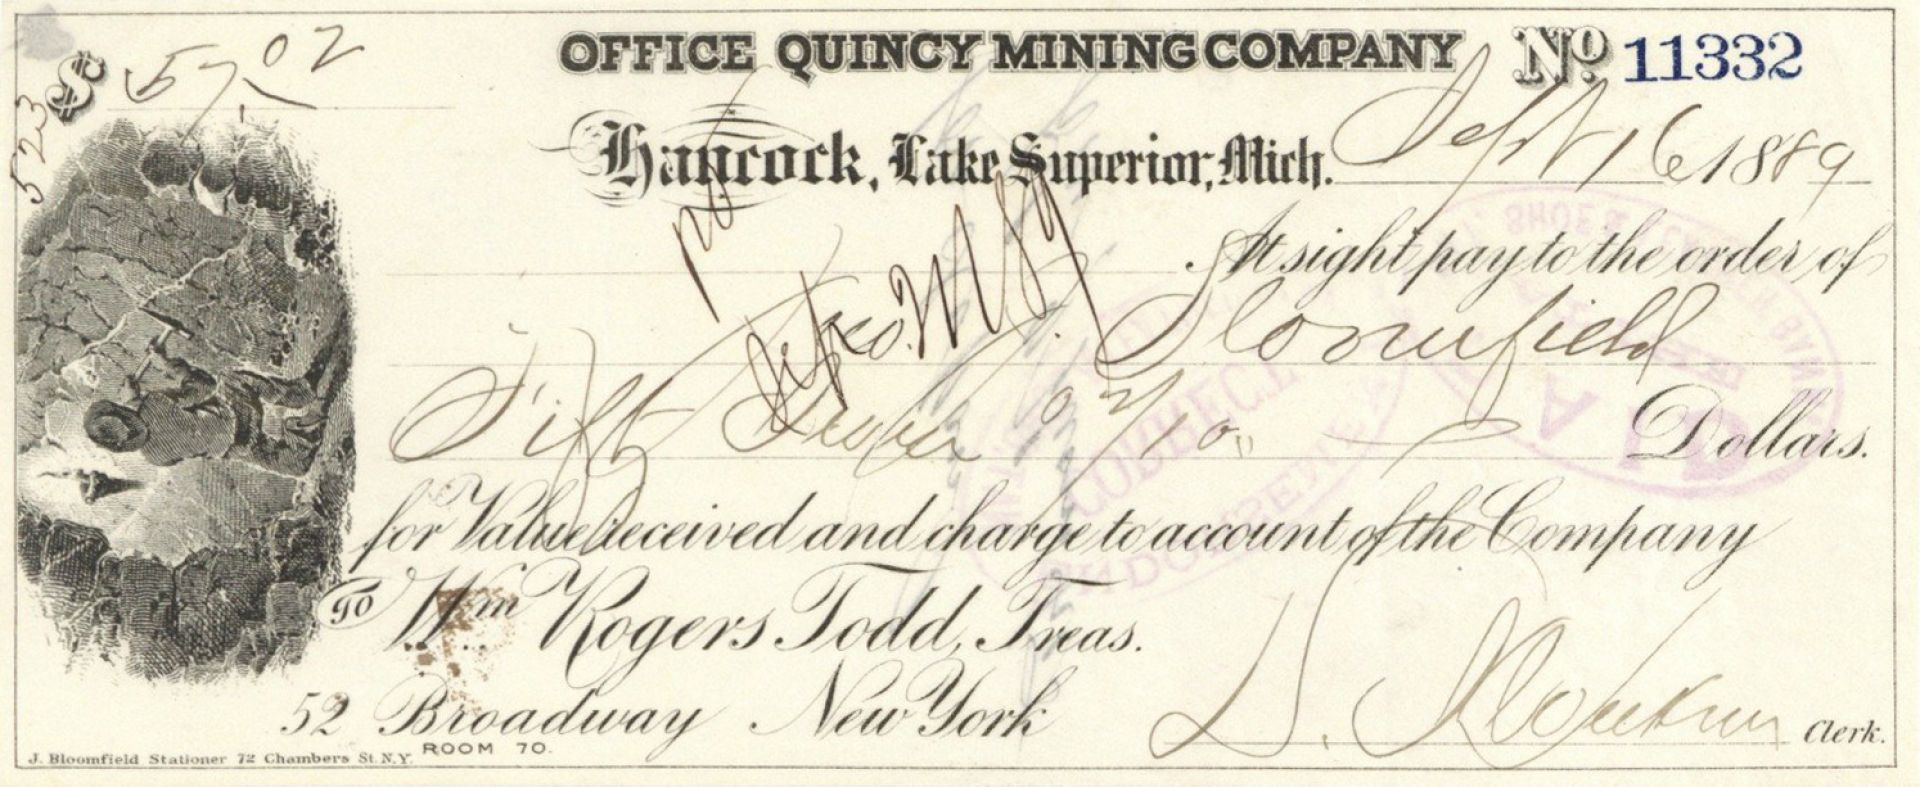 $ 57.02
OFFICE QUINCY MINING COMPANY No 11332
523
Hancock, Lake Superior, Mich. Sept 16 1889
At sight pay to the order of
Bloomfield
Fifty Seven 02/100 Dollars.
for Value received and charge to account of the Company
To Wm Rogers Todd, Treas.
52 Broadway New York
ROOM 70.
Clerk.
J. Bloomfield Stationer 72 Chambers St. N.Y.
CORRECT